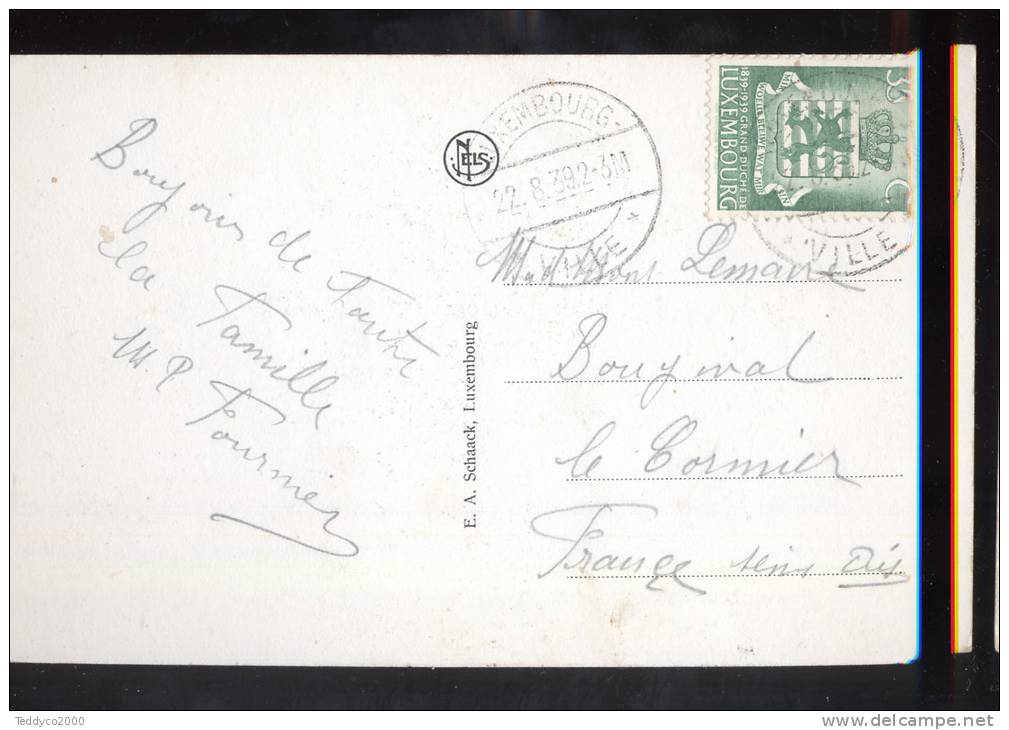 Bonjour de
toute
la Famille
M. P. Fournier
NELS
E. A. Schaack, Luxembourg
LUXEMBOURG-
22. 8. 39. 2-3M
VILLE
35 C
1839-1939 GRAND-DUCHÉ DE
LUXEMBOURG
MIR WOLLE BLEIWE WAT MIR SIN
VILLE
Lemaire
Bougival
le Cormier
France
Teddyco2000
delcampe.net